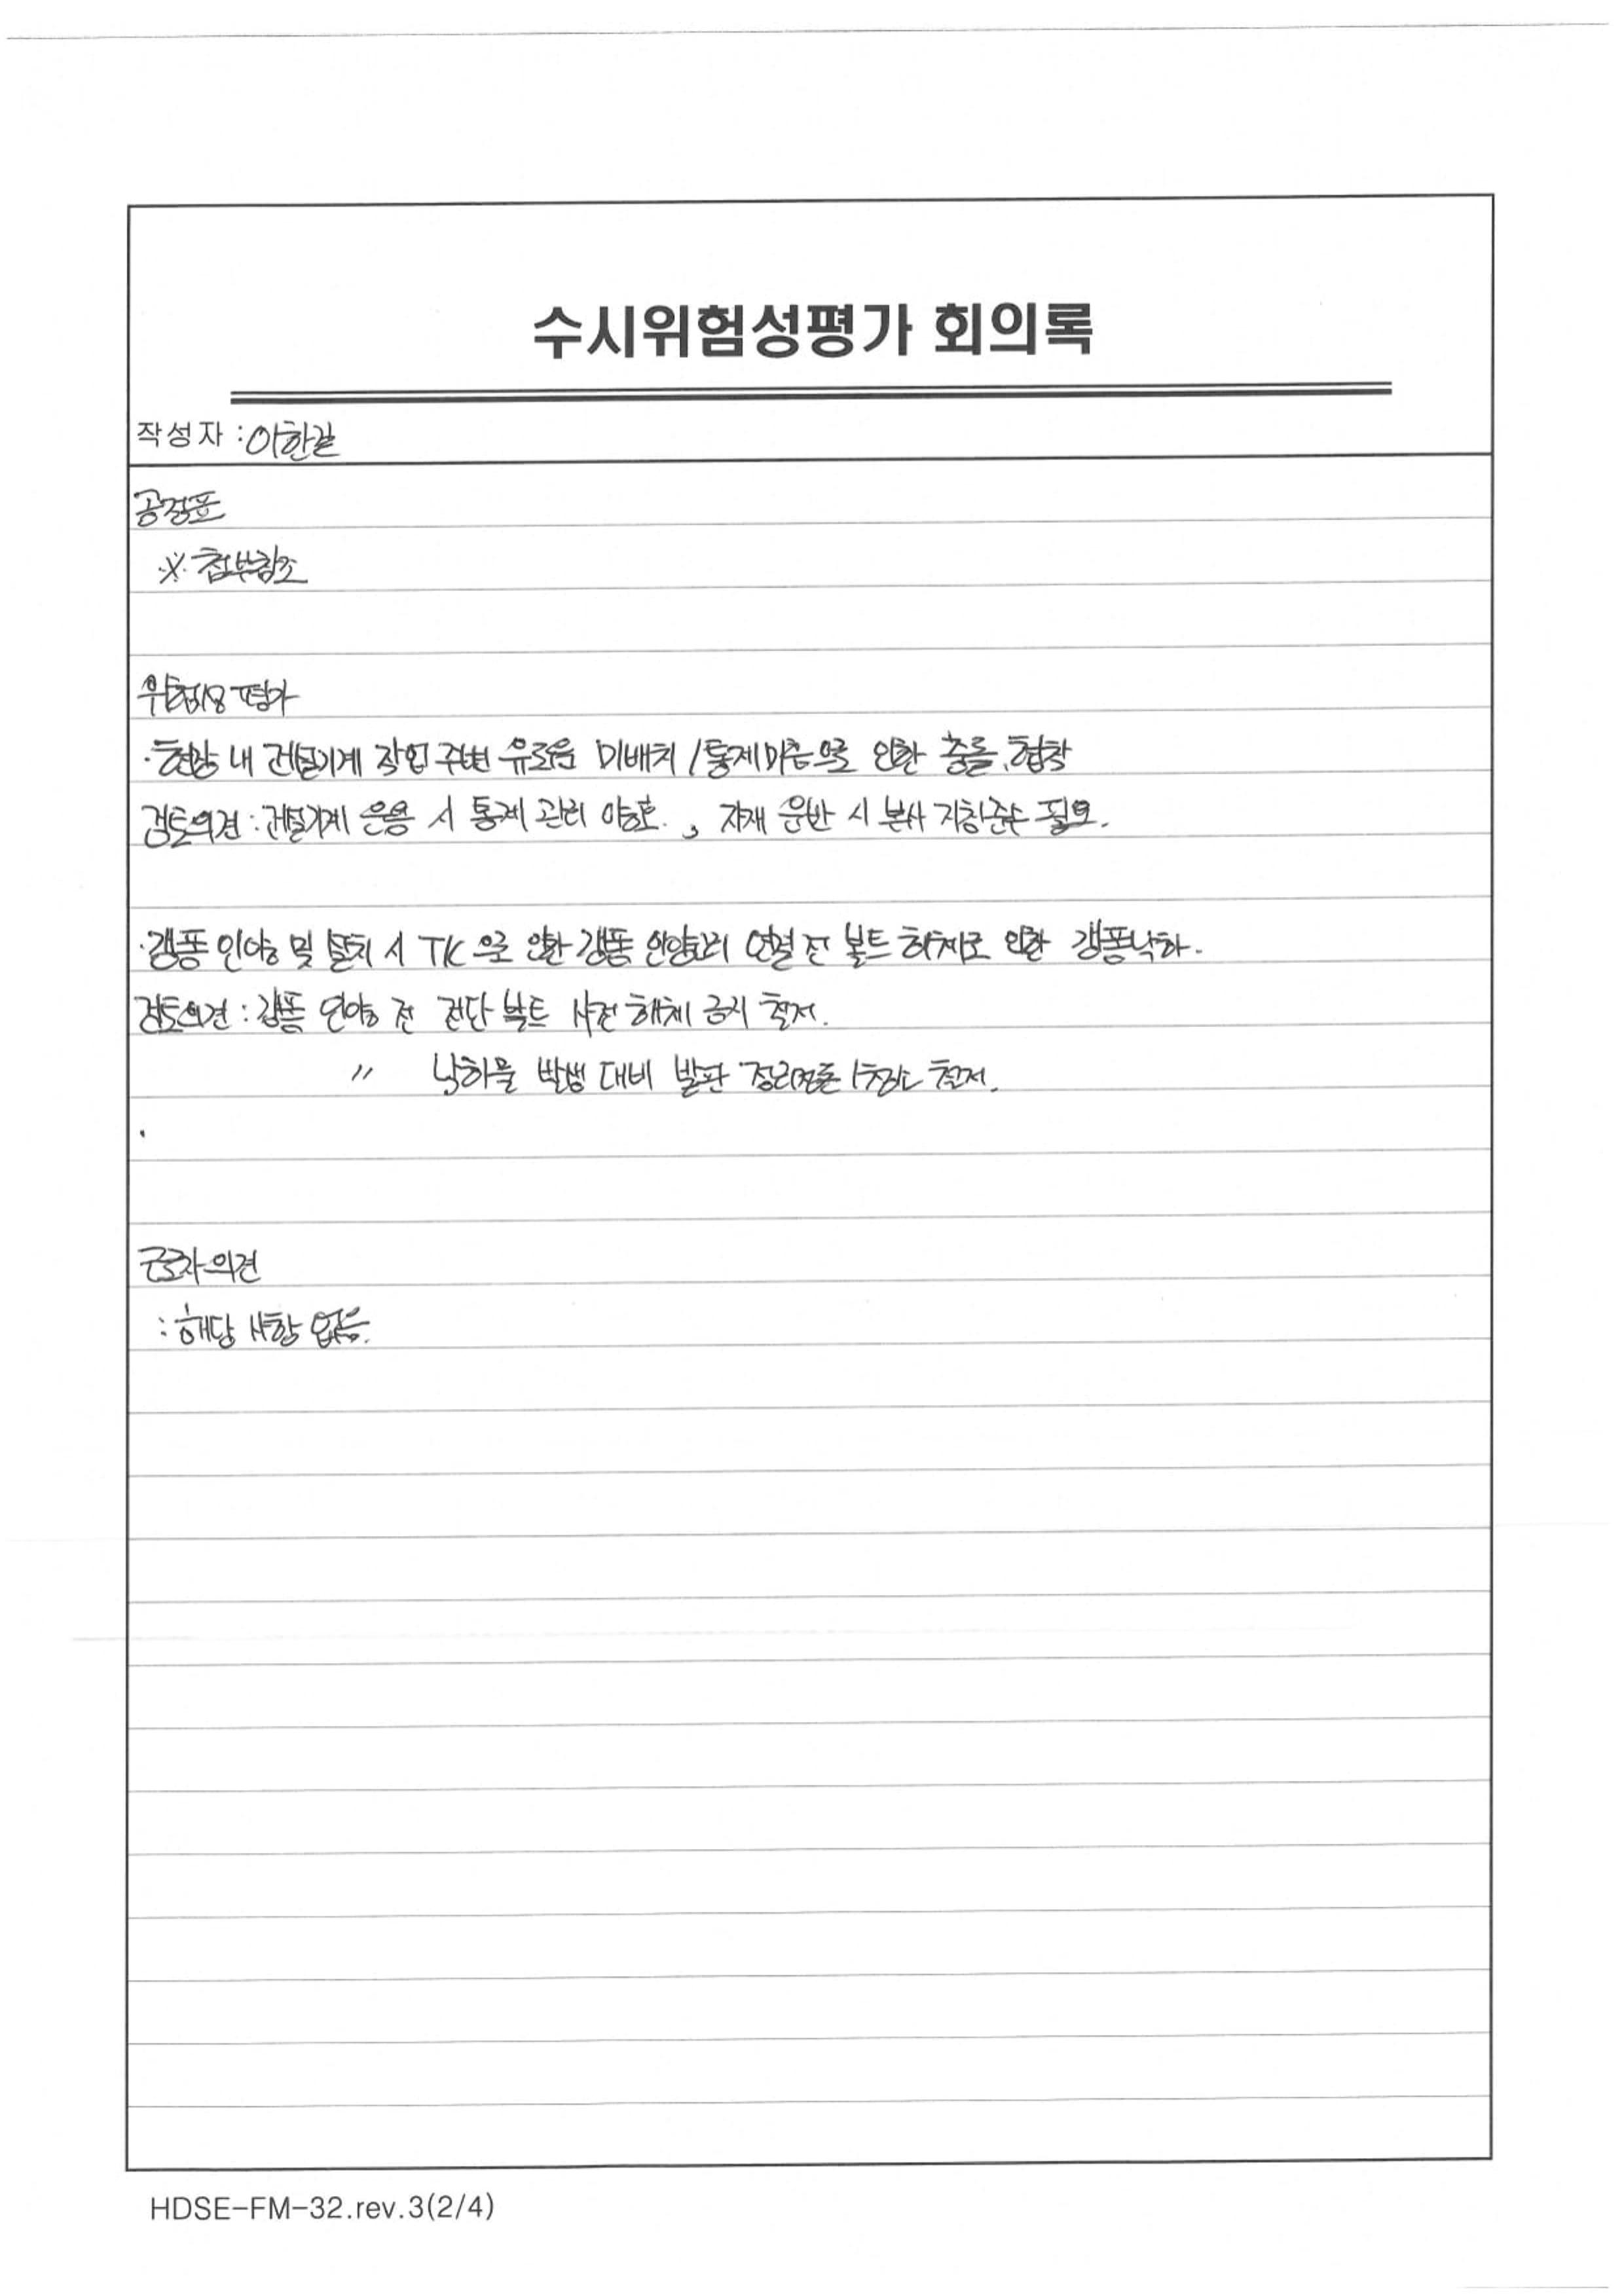 수시위험성평가 회의록
작성자 : 이한길
공정표
※ 첨부참조
위험성 평가
· 현장 내 건설기계 작업 주변 유도원 미배치 / 통제미흡으로 인한 충돌, 협착
검토의견 : 건설기계 운용 시 통제 관리 양호. , 자재 운반 시 본사 지침준수 필요.
· 갱폼 인양 및 설치 시 T/C 으로 인한 갱폼 인양고리 연결 전 볼트 해체로 인한 갱폼낙하.
검토의견 : 갱폼 인양 전 전단 볼트 사전 해체 금지 철저.
〃 낙하물 발생 대비 발판 정리정돈 철저.
·
근로자 의견
: 해당 사항 없음.
HDSE-FM-32.rev.3(2/4)